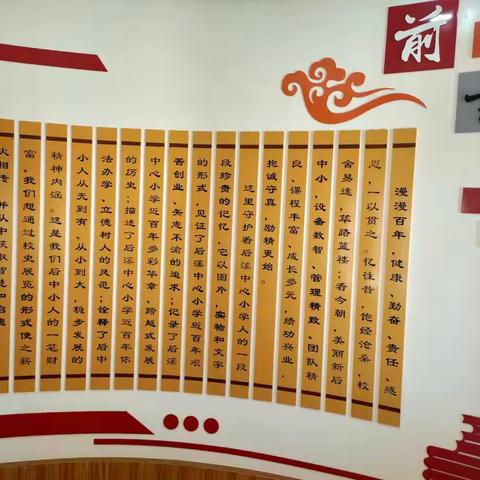 前
言
漫漫百年，健康、勤奋、责任、感
恩，一以贯之。忆往昔，饱经沧桑，校
舍易迹，筚路蓝褛；看今朝，美丽新后
中小，设备数智、管理精致、团队精
良、课程丰富、成长多元，绩功兴业，
抱诚守真，励精更始。
这里守护着后溪中心小学人的一段
段珍贵的记忆，它以图片，实物和文字
的形式，见证了后溪中心小学近百年艰
苦创业、矢志不渝的追求；记录了后溪
中心小学近百年多彩华章、跨越式发展
的历史；描述了后溪中心小学近百年依
法办学、立德树人的风范；诠释了后中
小人从无到有、从小到大，稳步发展的
精神内涵。这是我们后中小人的一笔财
富，我们想通过校史展览的形式使之薪
火相传，并从中获取智慧和启